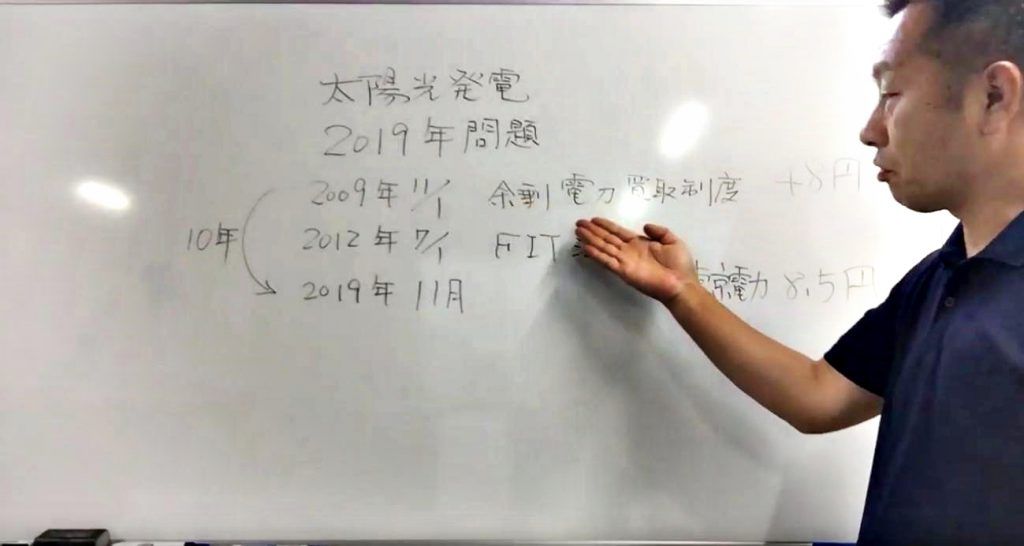 太陽光発電
2019年問題
2009年 11/1 余剰電力買取制度
10年 2012年 7/1 FIT
2019年 11月 電力 8.5円